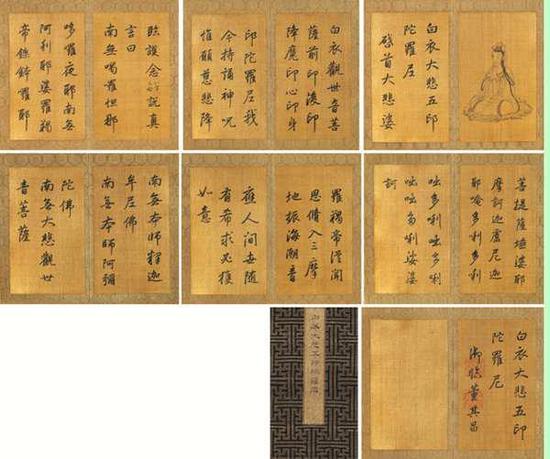 白衣大悲五印
陀羅尼
首大悲婆
白衣觀世音菩
薩前印後印
降魔印心印身
印陀羅尼我
今持誦神咒
惟願慈悲降
臨護念說真
言曰
南無喝羅怛那
哆羅夜耶南無
阿利耶婆羅羯
帝爍鉢羅耶
菩提薩埵婆耶
摩訶迦盧尼迦
耶唵多利多利
咄多利咄多利
咄咄多利娑婆
訶
羅羯帝從聞
思脩入三摩
地振海潮音
應人間世隨
有希求必獲
如意
南無本師釋迦
牟尼佛
南無本師阿彌
陀佛
南無大悲觀世
音菩薩
白衣大悲五印
陀羅尼
御臨董其昌
白衣大悲五印陀羅尼